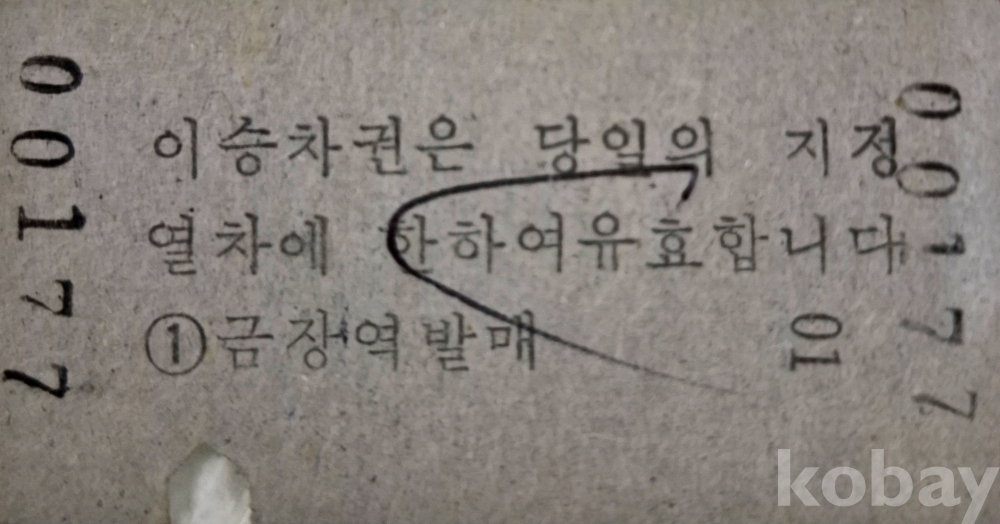 00177
이승차권은 당일의 지정
열차에 한하여유효합니다
①금장역발매
01
00177
kobay